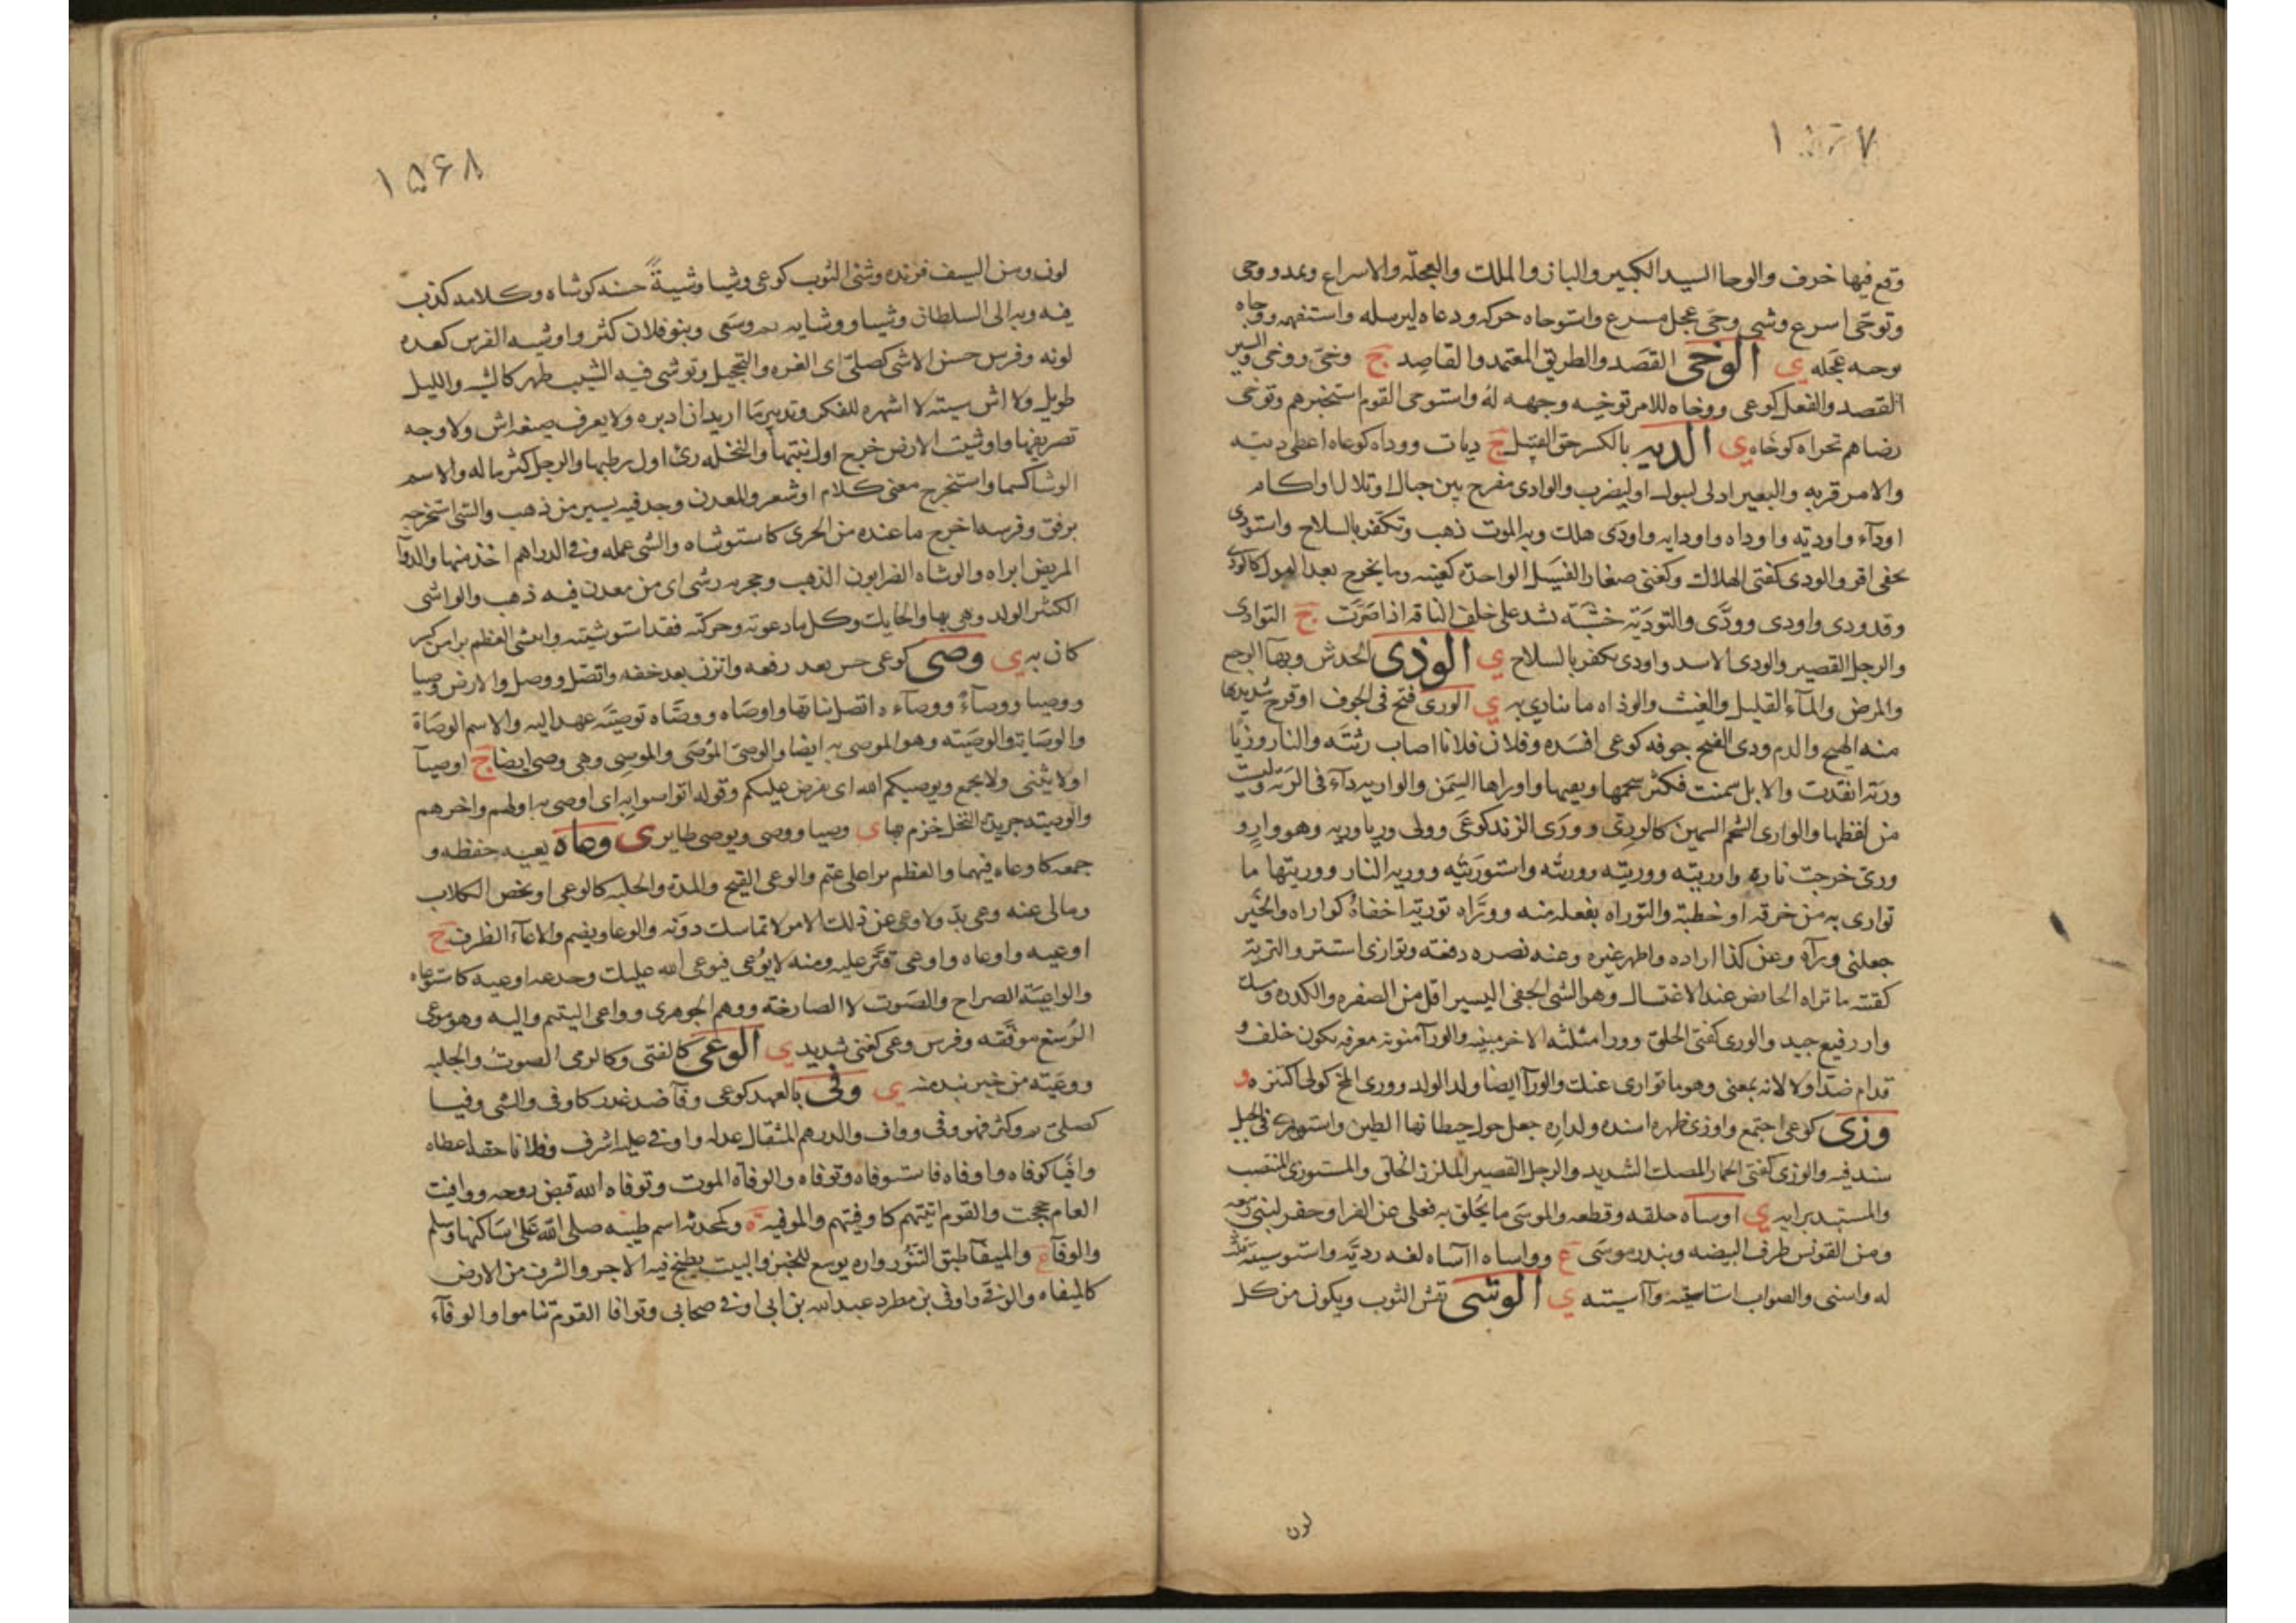 وقع فيها خرف والوحا السيد الكبير والباز والملك والعجلة والاسراع ويمد ووحى
وتوحى اسرع وشى وحى عجل مسرع واستوحاه حركه ودعاه ليرسله واستفهمه ووحاه
توحيه عجله ي الوخى القصد والطريق المعتمد والقاصد ج وخى ووخى والسير
القصد والفعل كوعى ووخاه للامر توخيه وجهه له واستوخى القوم استخبرهم وتوخى
رضاهم تحراه كوخاه ي الدية بالكسر حق القتيل ج ديات ووداه كوعاه اعطى ديته
والامر قربه والبعير ادلى ليبول او ليضرب والوادى مفرج بين جبال او تلال او اكام
اودآء واودية واوداه واوداية واودى هلك وبه الموت ذهب وتكفر بالسلاح واستودى
بحقى اقر والودى كفتى الهلاك وكغنى صغار الفسيل الواحدة كغنيه وما يخرج بعد البول كالودى
وقد ودى واودى وودى والتودية خشبة تشد على خلف الناقة اذا صرت ج التوادى
والرجل القصير والودى الاسد واودى تكفر بالسلاح ي الوذى الخدش وبهآ الوجع
والمرض والمآء القليل والغيث والوذاه ما يتاذى به ي الورى قيح فى الجوف او قرح شديد
منه القيح والدم ودى القيح جوفه كوعى افسده وفلان فلانا اصاب رئته والنار وريا
ورية اتقدت والابل سمنت فكثر شحمها ونقيها واوراها السمن والواريه دآء فى الرئة وليست
من لفظها والوارى الشحم السمين كالورى وورى الزند كوعى وولى وريا وريه وهو وار و
ورى خرجت ناره واوريته ووريته وريته واستوريته وورية النار ووريتها ما
توارى به من خرقة او خطبة والتوراه تفعلة منه ووراه تورية اخفاه كواراه والخبر
جعله ورآه وعن كذا اراده واظهر غيره وعنه نصره دفعه وتوارى استتر والترية
كغنية ما تراه الحائض عند الاغتسال وهو الشى الخفى اليسير اقل من الصفره والكدره ومسك
وار رفيع جيد والورى كفتى الخلق وورا مثلثه الاخر مبنيه والورآ منونة معرفه يكون خلف و
قدام ضد اولا لانه بمعنى وهو ما توارى عنك والورآ ايضا ولد الولد وورى المخ كولى اكتنز و
وزى كوعى اجتمع واوزى ظهره اسنده ولداره جعل حول حيطانها الطين واستوزى فى الجبل
سند فيه والوزى كفتى الحمار المصك الشديد والرجل القصير الملزز الخلق والمستوزى المنتصب
والمستبد برايه ي اوساه حلقه وقطعه والموسى ما يحلق به فعلى عن الفرا وحفر لبنى ربيعه
ومن القونس طرف البيضه وبندر موسى ع وواساه آساه لغه رديه واستوسيته
له واسنى والصواب استاسيته وآسيته ي الوشى نقش الثوب ويكون من كل
لون
١٥۶٨
لون ومن السيف فرنده وشى الثوب كوعى وشيا وشية حسنه كوشاه وكلامه كذب
فيه وبه الى السلطان وشيا ووشايه نم وسعى وبنو فلان كثروا وشية الفرس كعده
لونه وفرس حسن الاشى كصلى اى الغره والتحجيل وتوشى فيه الشيب ظهر كالشيه والليل
طويل ولا اش سيته لا اشهره للفكر وتدبير ما اريد ان ادبره ولا يعرف صيغه اش ولا وجه
تصريفها واوشت الارض خرج اول نبتها والنخله رئى اول رطبها والرجل كثر ماله والاسم
الوشا كسما واستخرج معنى كلام او شعر والمعدن وجد فيه يسير من ذهب والشى استخرجه
برفق وفرسه اخرج ما عنده من الجرى كاستوشاه والشى علمه وفى الدراهم اخذ منها والدوآ
المريض ابراه والوشاه الضرابون الذهب وحجر به وشى اى من معدن فيه ذهب والواشى
الكثير الولد وهى بها والحايك وكل ما دعوته وحركته فقد استوشيته واتشى العظم برا من كسر
كان به ي وصى كوعى خس بعد رفعه واتزن بعد خفه واتصل ووصل والارض وصيا
ووصيا ووصآء ووصآءه اتصل نباتها واوصاه ووصاه توصية عهد اليه والاسم الوصاة
والوصاية والوصية وهو الموصى به ايضا والوصى الموصى والموصى وهى وصى ايضا ج اوصيآ
او لا يثنى ولا يجمع ويوصيكم الله اى يفرض عليكم وقوله اتواصوا به اى اوصى به اولهم واخرهم
والوصية جريدة النخل خزم بها ي وصيا ووصى ويوصى طاير ى وعاه يعيه حفظه و
جمعه كاوعاه فيهما والعظم برا على عثم والوعى القيح والمدة والجلبه كالوعى او يخص الكلاب
ومالى عنه وعى بد ولا وعى عن ذلك الامر لا تماسك دونه والوعا ويضم والاعآء الظرف ج
اوعيه واوعاه واوعى قتر عليه ومنه لا يوعى فيوعى الله عليك وجدعه اوعبه كاستوعاه
والواعية الصراخ والصوت لا الصارخة ووهم الجوهرى وواعى اليتيم واليه وهو موعى
الرسغ موثقه وفرس وعى كغنى شديد ي الوغى كالفتى وكالرمى الصوت والجلبه
ووغية من خير نبذ منه ي وفى بالعهد كوعى وفآ ضد غدر كاوفى والشى وفيا
كصلى تم وكثر فهو وفى وواف والدرهم المثقال عدله واوفى عليه اشرف وفلانا حقه اعطاه
وافيا كوفاه واوفاه فاستوفاه وتوفاه والوفاة الموت وتوفاه الله قبض روحه ووافيت
العام حججت والقوم اتيتهم كاوفيتهم والموفيه ة وكمحدثه اسم طيبه صلى الله على ساكنها وسلم
والوفآ ع والميفآ طبق التنور واره يوسع للخبز والبيت يطبخ فيه الاجر والشرف من الارض
كالميفاه والوفى واوفى بن مطرد عبد الله بن ابى اوفى صحابى وتوافا القوم تتاموا والوفآء